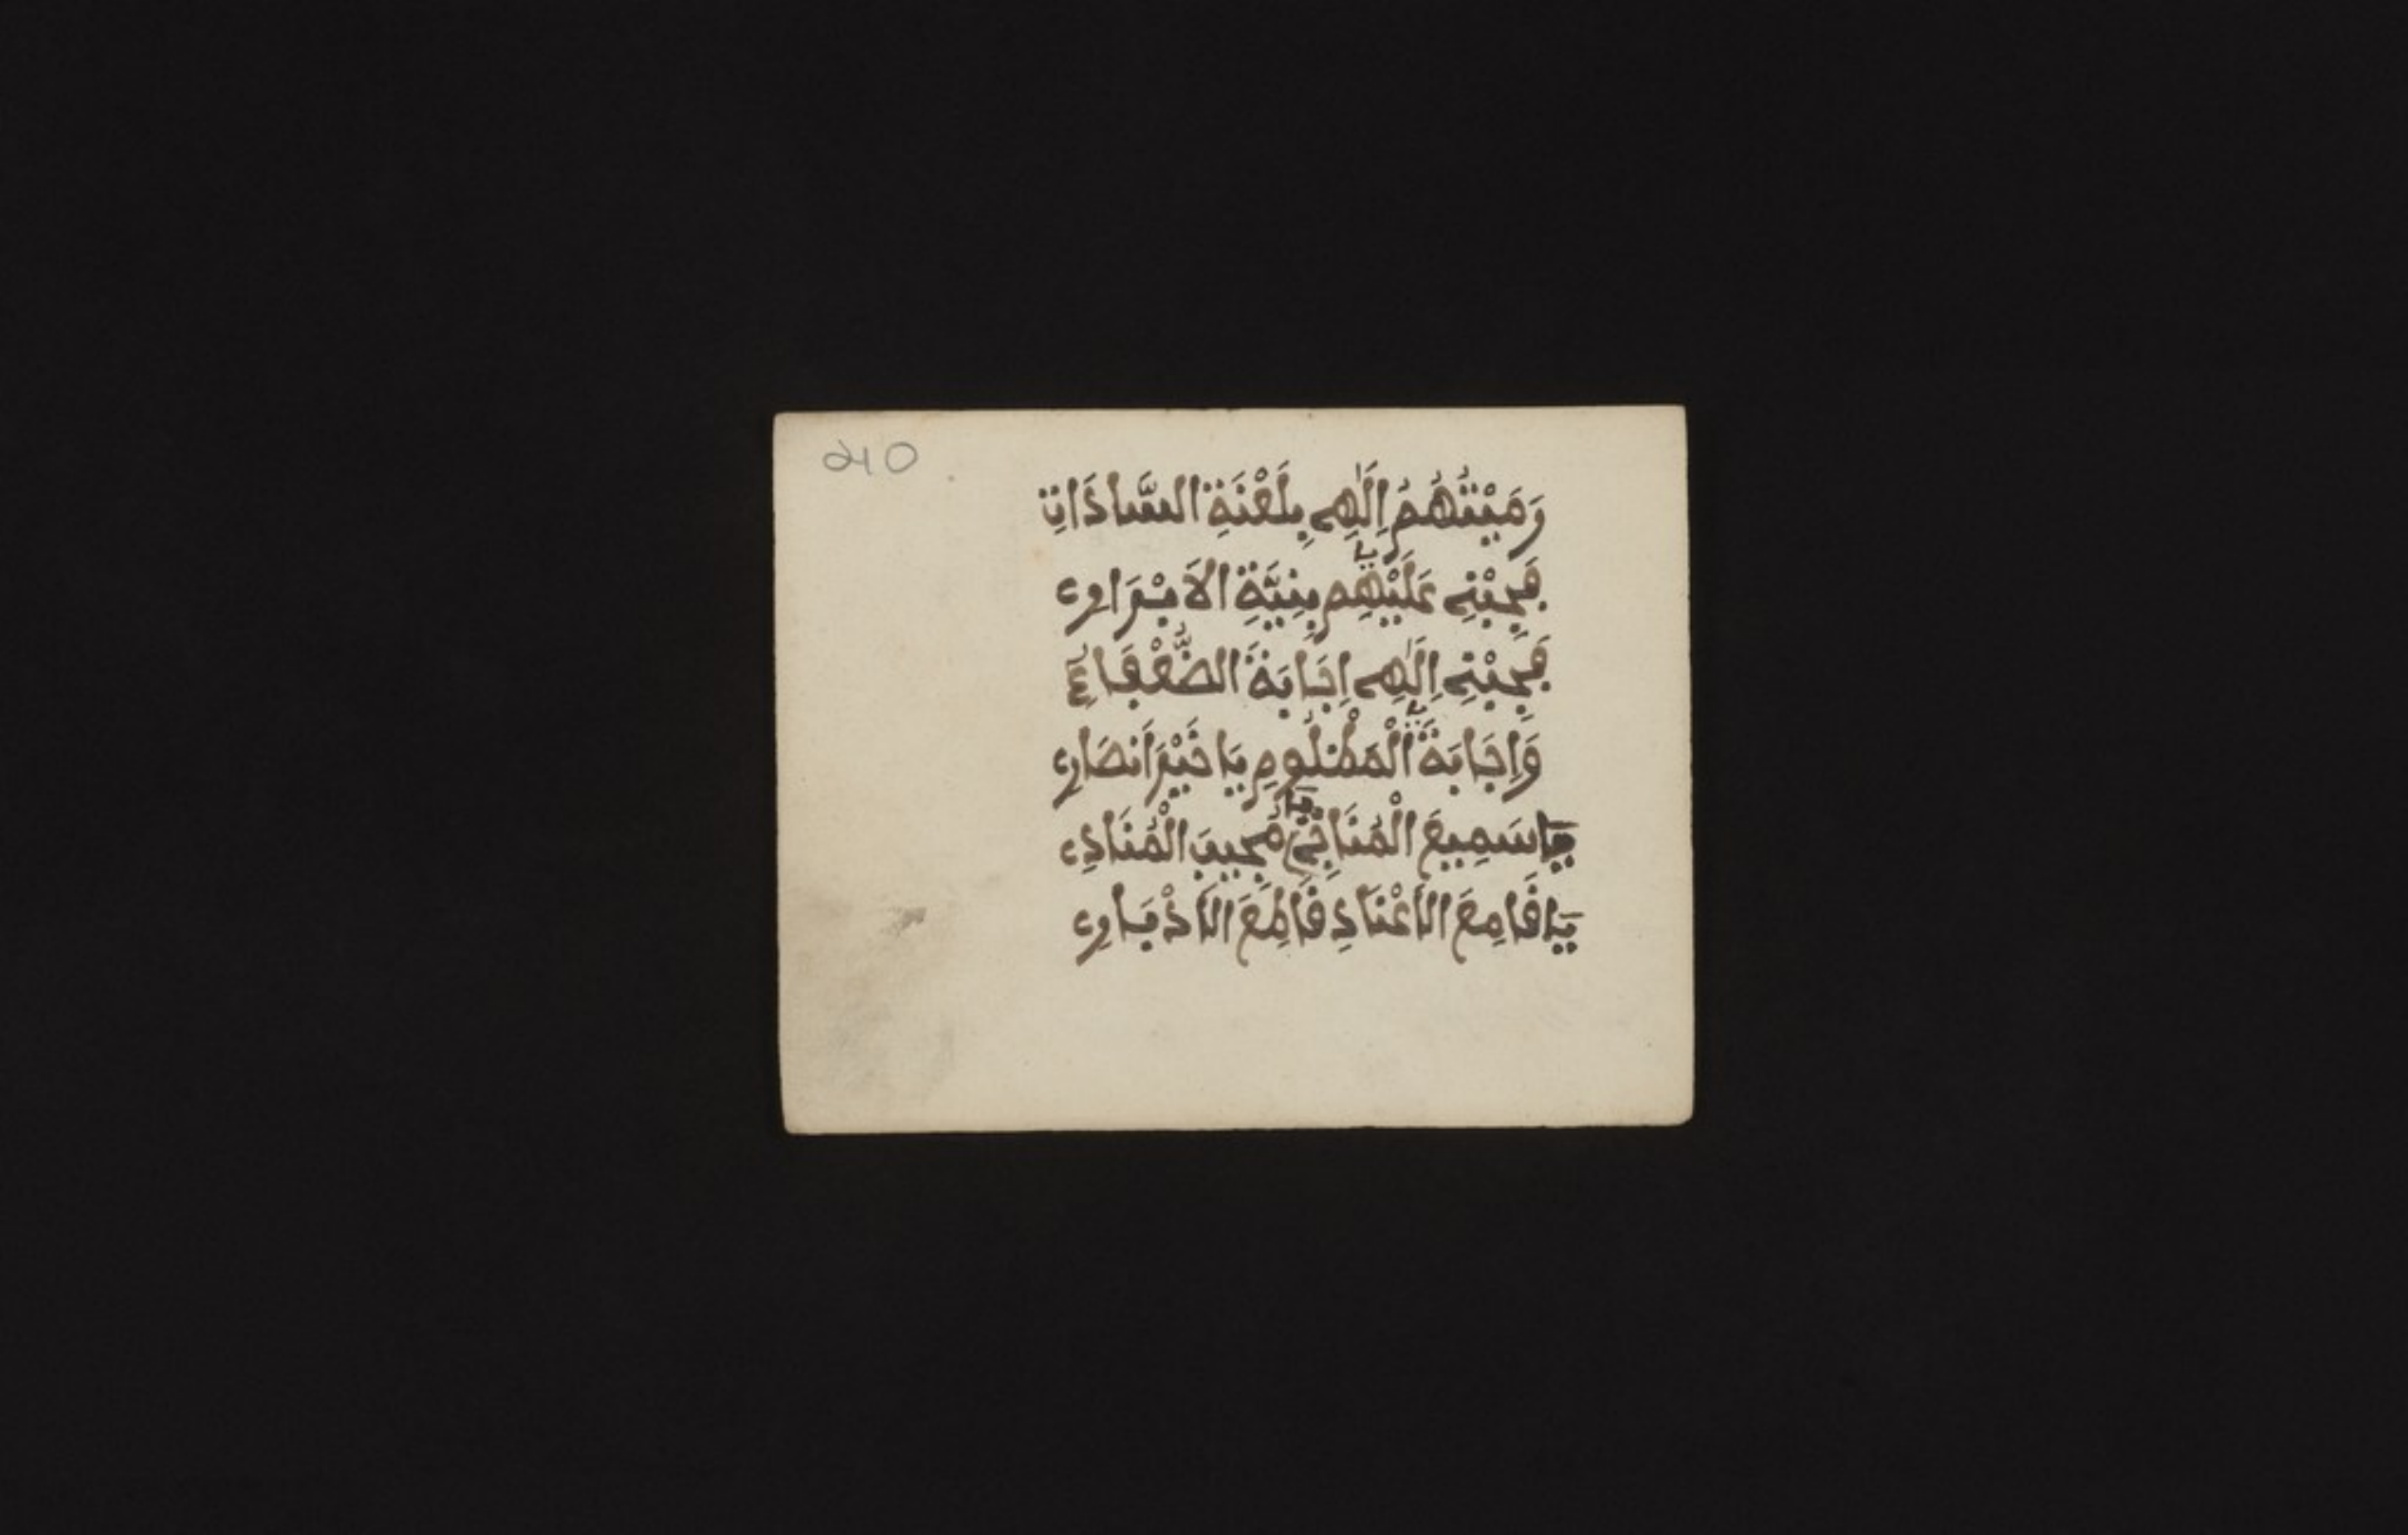 210
رَمَيْتُهُمُ إِلَٰهِي بِلَعْنَةِ السَّادَاتِ
فَجِئْنِي عَلَيْهِم بِنِيَّةِ الاَبْرَارِ
فَجِئْنِي إِلَٰهِي إِجَابَةَ الضُّعْفَاءِ
وَإِجَابَةَ الْمَظْلُومِ يَا خَيْرَ أَنصَارِ
يَا سَمِيعَ الْمُنَاجِي يَا مُجِيبَ الْمُنَادِ
يَا قَامِعَ الأَعْنَادِ قَاطِعَ الأَدْبَارِ